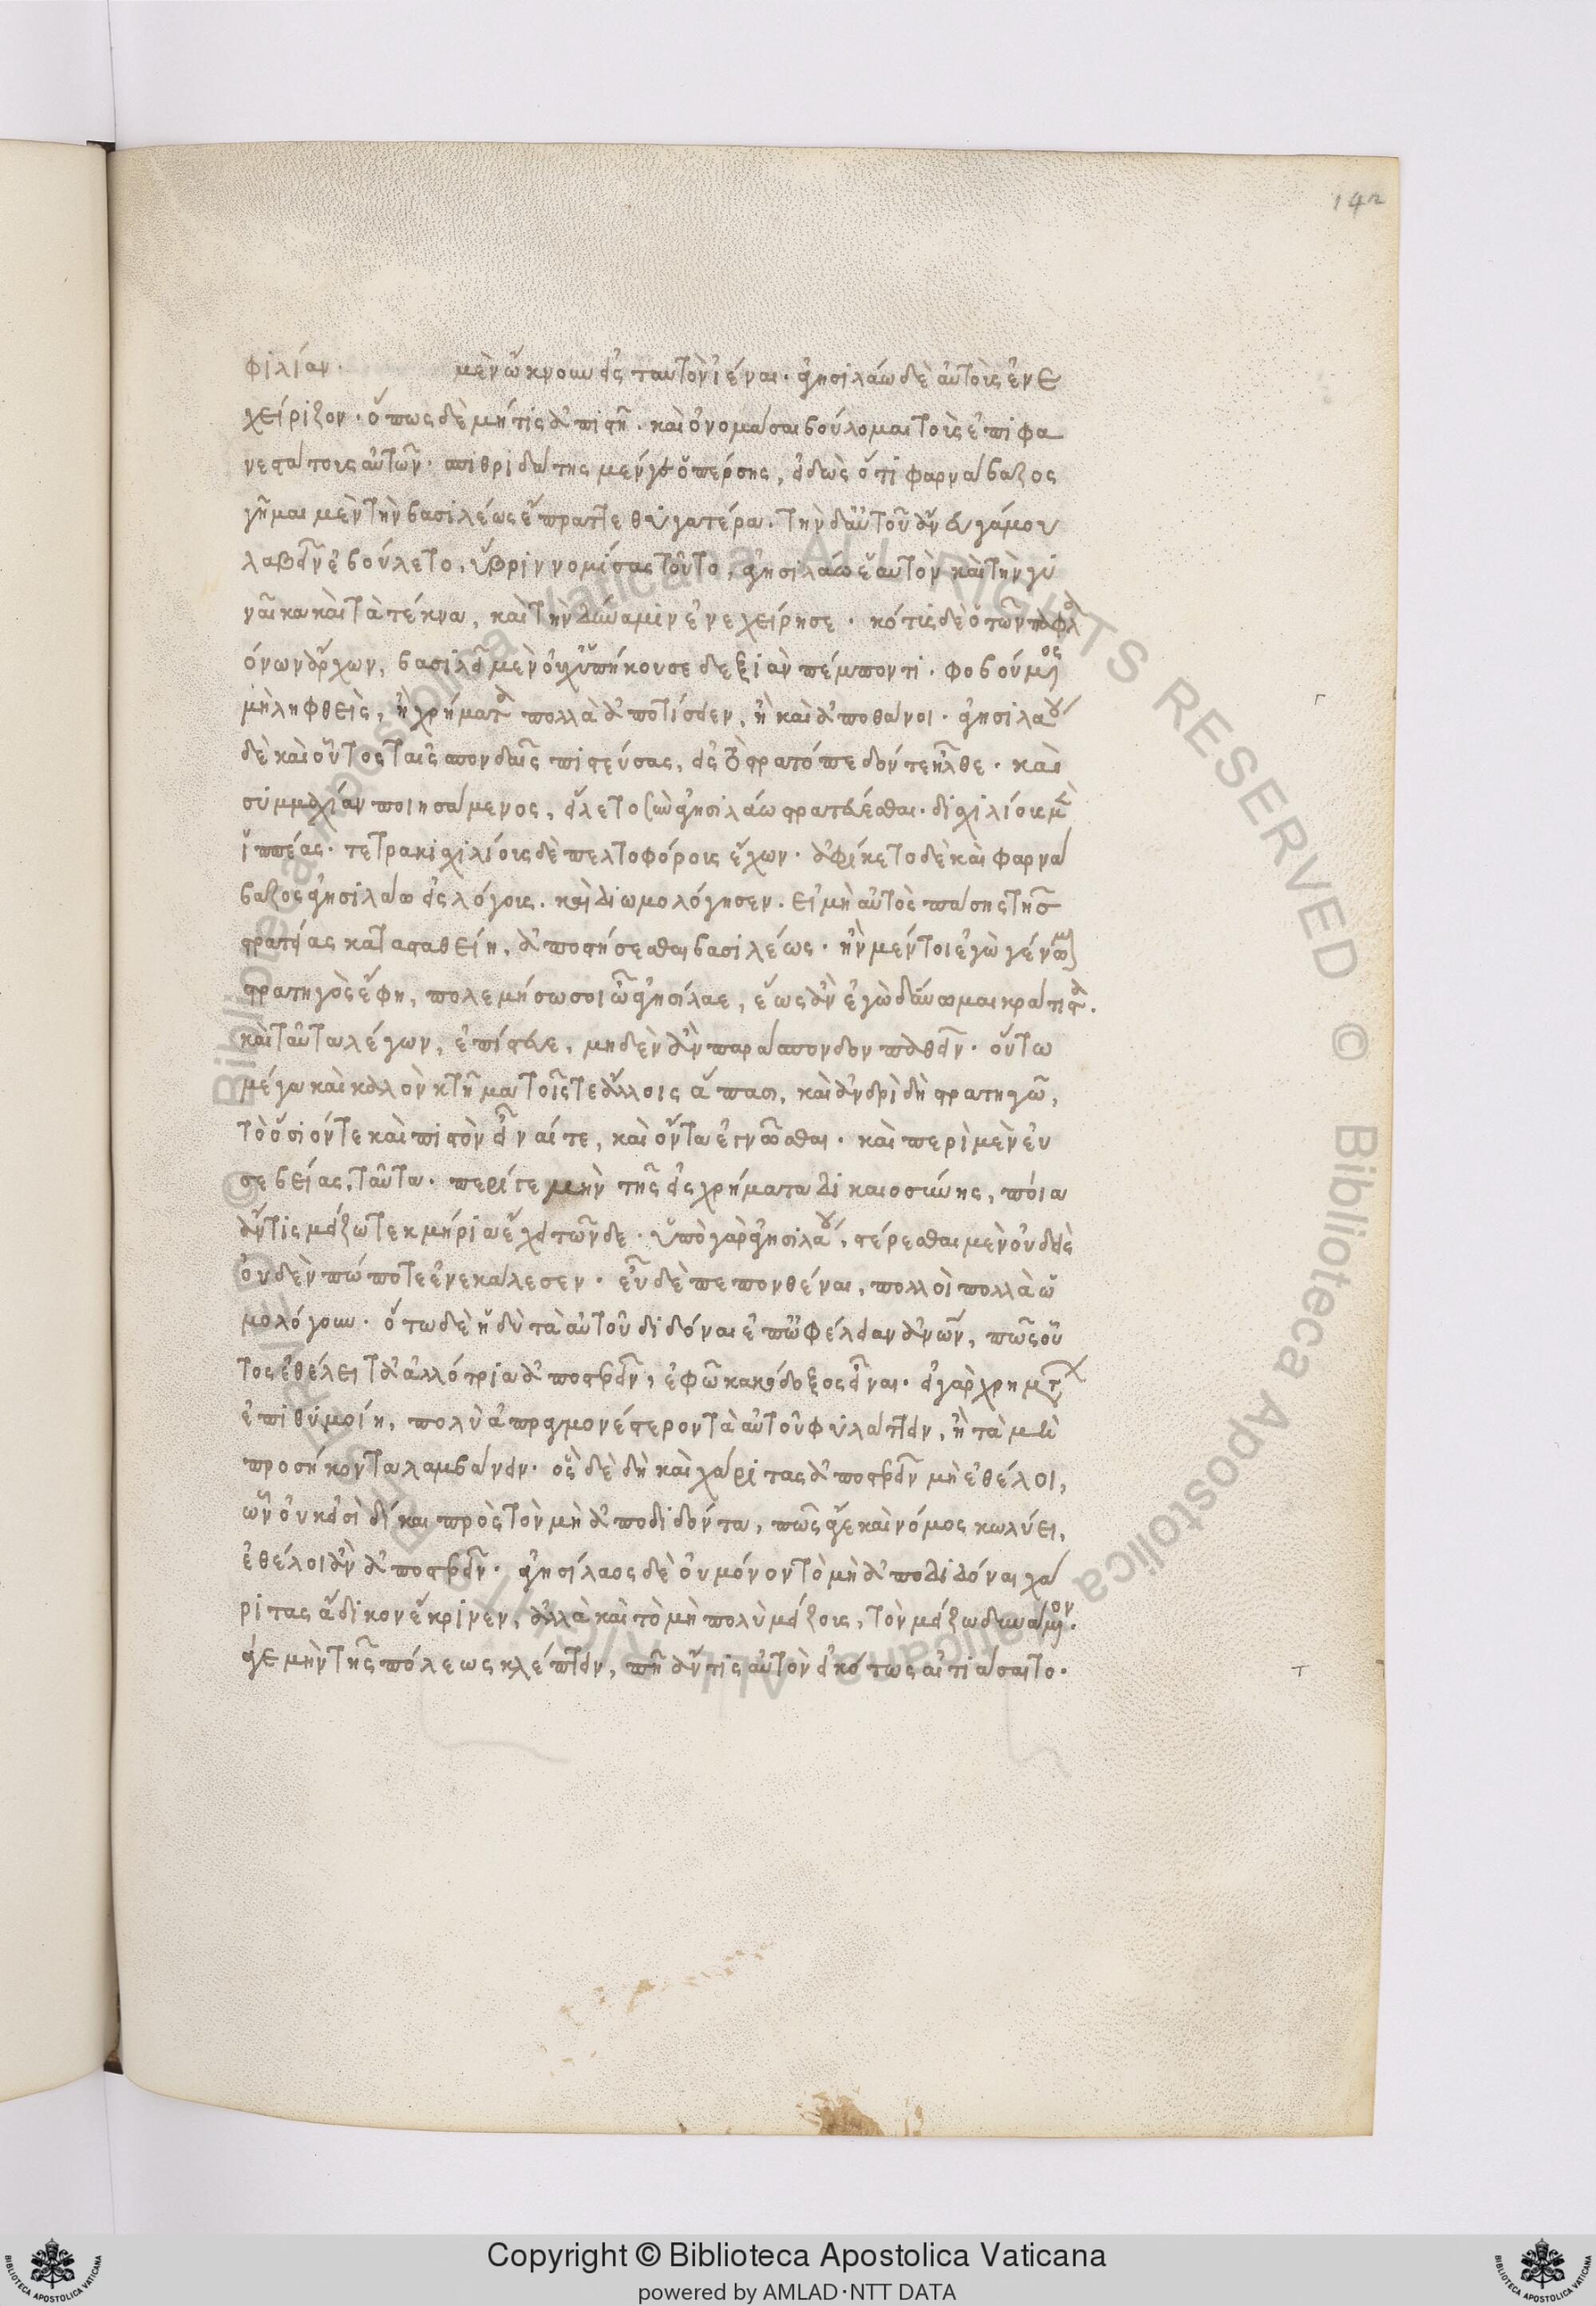 142
φιλίαν· μὲν ὤκνουν εἰς ταυτὸν ἰέναι· ἀγησιλάω δὲ αὐτοὺς ἐνε
χείριζον· ὅπως δὲ μή τις ἀπιστῆ· καὶ ὀνομάσαι βούλομαι τοὺς ἐπιφα
νεστάτους αὐτῶν· σπιθριδάτης μέν γε ὁ πέρσης, εἰδὼς ὅτι φαρνάβαζος
γῆμαι μὲν τὴν βασιλέως ἔπραττε θυγατέρα· τὴν δ' αὐτοῦ ἄνευ γάμου
λαβεῖν ἐβούλετο, ὕβριν νομίσας τοῦτο, ἀγησιλάω ἑαυτὸν καὶ τὴν γυ
ναῖκα καὶ τὰ τέκνα, καὶ τὴν δύναμιν ἐνεχείρησε· κότυς δὲ ὁ τῶν παφλα
όνων ἄρχων, βασιλεῖ μὲν οὐχ ὑπήκουσε δεξιὰν πέμποντι· φοβούμενος
μὴ ληφθεὶς, ἢ χρήματα πολλὰ ἀποτίσειεν, ἢ καὶ ἀποθάνοι· ἀγησιλάου
δὲ καὶ οὗτος ταῖς σπονδαῖς πιστεύσας, εἰς τὸ στρατόπεδόν τε ἦλθε· καὶ
συμμαχίαν ποιησάμενος, εἵλετο σὺν ἀγησιλάω στρατεύεσθαι· δισχιλίους μὲν
ἱππέας· τετρακισχιλίους δὲ πελτοφόρους ἔχων· ἀφίκετο δὲ καὶ φαρνά
βαζος ἀγησιλάω εἰς λόγους· καὶ διωμολόγησεν· εἰ μὴ αὐτὸς πάσης τῆς
στρατιᾶς κατασταθείη, ἀποστήσεσθαι βασιλέως· ἢν μέντοι ἐγὼ γένωμαι
στρατηγὸς ἔφη, πολεμήσω σοι ὦ ἀγησίλαε, ἕως ἂν ἐγὼ δύνωμαι κράτιστα.
καὶ ταῦτα λέγων, ἐπίστευε, μηδὲν ἂν παράσπονδον παθεῖν· οὕτω
μέγα καὶ καλὸν κτῆμα τοῖς τε ἄλλοις ἅπασι, καὶ ἀνδρὶ δὴ στρατηγῶ,
τὸ ὅσιόν τε καὶ πιστὸν εἶναί τε, καὶ ὄντα ἐγνῶσθαι· καὶ περὶ μὲν εὐ
σεβείας, ταῦτα· περί γε μὴν τῆς εἰς χρήματα δικαιοσύνης, ποῖα
ἄν τις μείζω τεκμήρια ἔχει τῶνδε· ὑπὸ γὰρ ἀγησιλάου, στέρεσθαι μὲν οὐδεὶς
οὐδὲν πώποτε ἐνεκάλεσεν· εὖ δὲ πεπονθέναι, πολλοὶ πολλὰ ὡ
μολόγουν· ὅτω δὲ ἡδὺ τὰ αὑτοῦ διδόναι ἐπ' ὠφελεία ἀνων, πῶς οὗ
τος ἐθέλει τὰ ἀλλότρια ἀποστερεῖν, ἐφ' ὧ κακόδοξος εἶναι· εἰ γὰρ χρημάτων
ἐπιθυμοίη, πολὺ ἀπραγμονέστερον τὰ αὑτοῦ φυλάττειν, ἢ τὰ μὴ
προσήκοντα λαμβάνειν· ὃς δὲ δὴ καὶ χάριτας ἀποστερεῖν μὴ ἐθέλοι,
ὧν οὐκ εἰσὶ δίκαι πρὸς τὸν μὴ ἀποδιδόντα, πῶς ἅ γε καὶ νόμος κωλύει,
ἐθέλοι ἂν ἀποστερεῖν· ἀγησίλαος δὲ οὐ μόνον τὸ μὴ ἀποδιδόναι χά
ριτας ἄδικον ἔκρινεν, ἀλλὰ καὶ τὸ μὴ πολὺ μείζους, τὸν μείζω δυνάμενον.
ἅ γε μὴν τῆς πόλεως κλέπτειν, πῆ ἄν τις αὐτὸν εἰκότως αἰτιάσαιτο·
© Biblioteca Apostolica Vaticana ALL RIGHTS RESERVED © Biblioteca Apostolica Vaticana ALL RIGHTS RESERVED
Copyright © Biblioteca Apostolica Vaticana
powered by AMLAD·NTT DATA